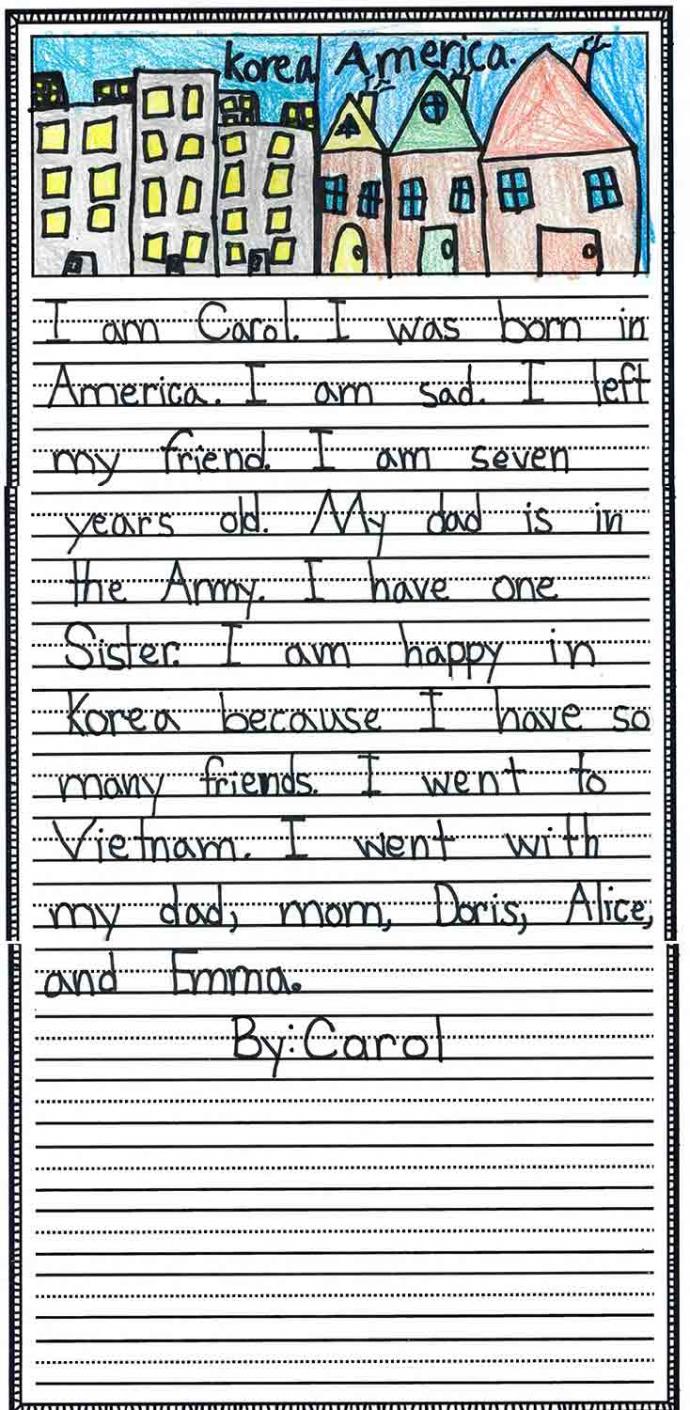 Korea America.
I am Carol. I was born in
America. I am sad. I left
my friend. I am seven
years old. My dad is in
the Army. I have one
Sister. I am happy in
Korea because I have so
many friends. I went to
Vietnam. I went with
my dad, mom, Doris, Alice,
and Emma.
By: Carol